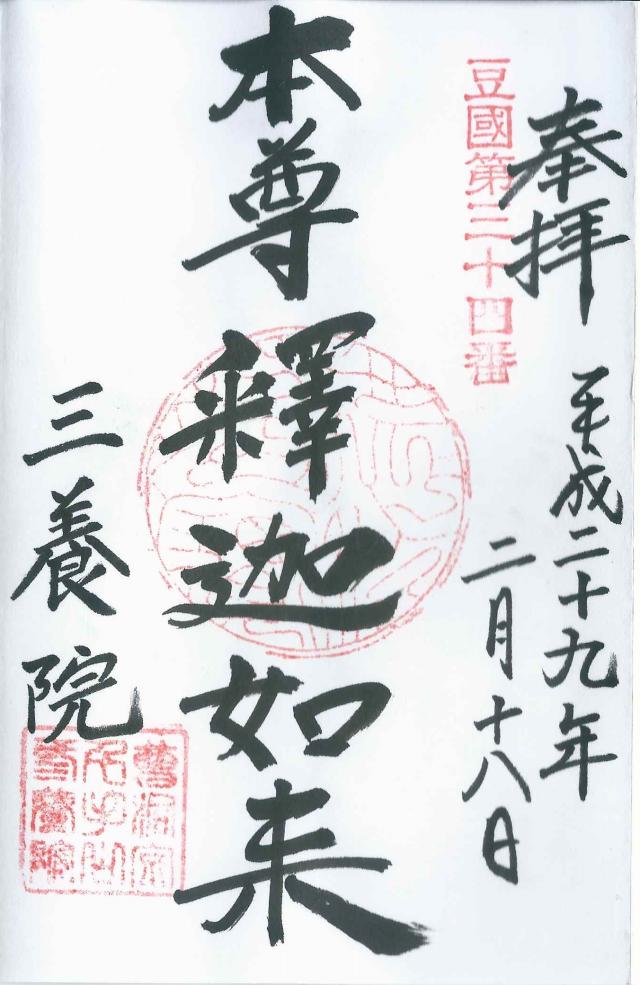 奉拝
豆國第三十四番
平成二十九年
二月十八日
本尊釋迦如来
三養院
曹洞宗